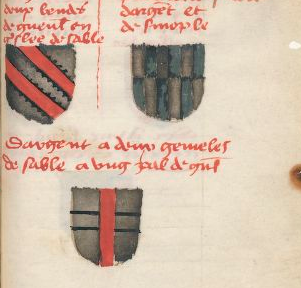 deux bendes
de gueul en
de sable
dargēt et
de sinople
Dargent a deux gemeles
de sable a ung pal de gul